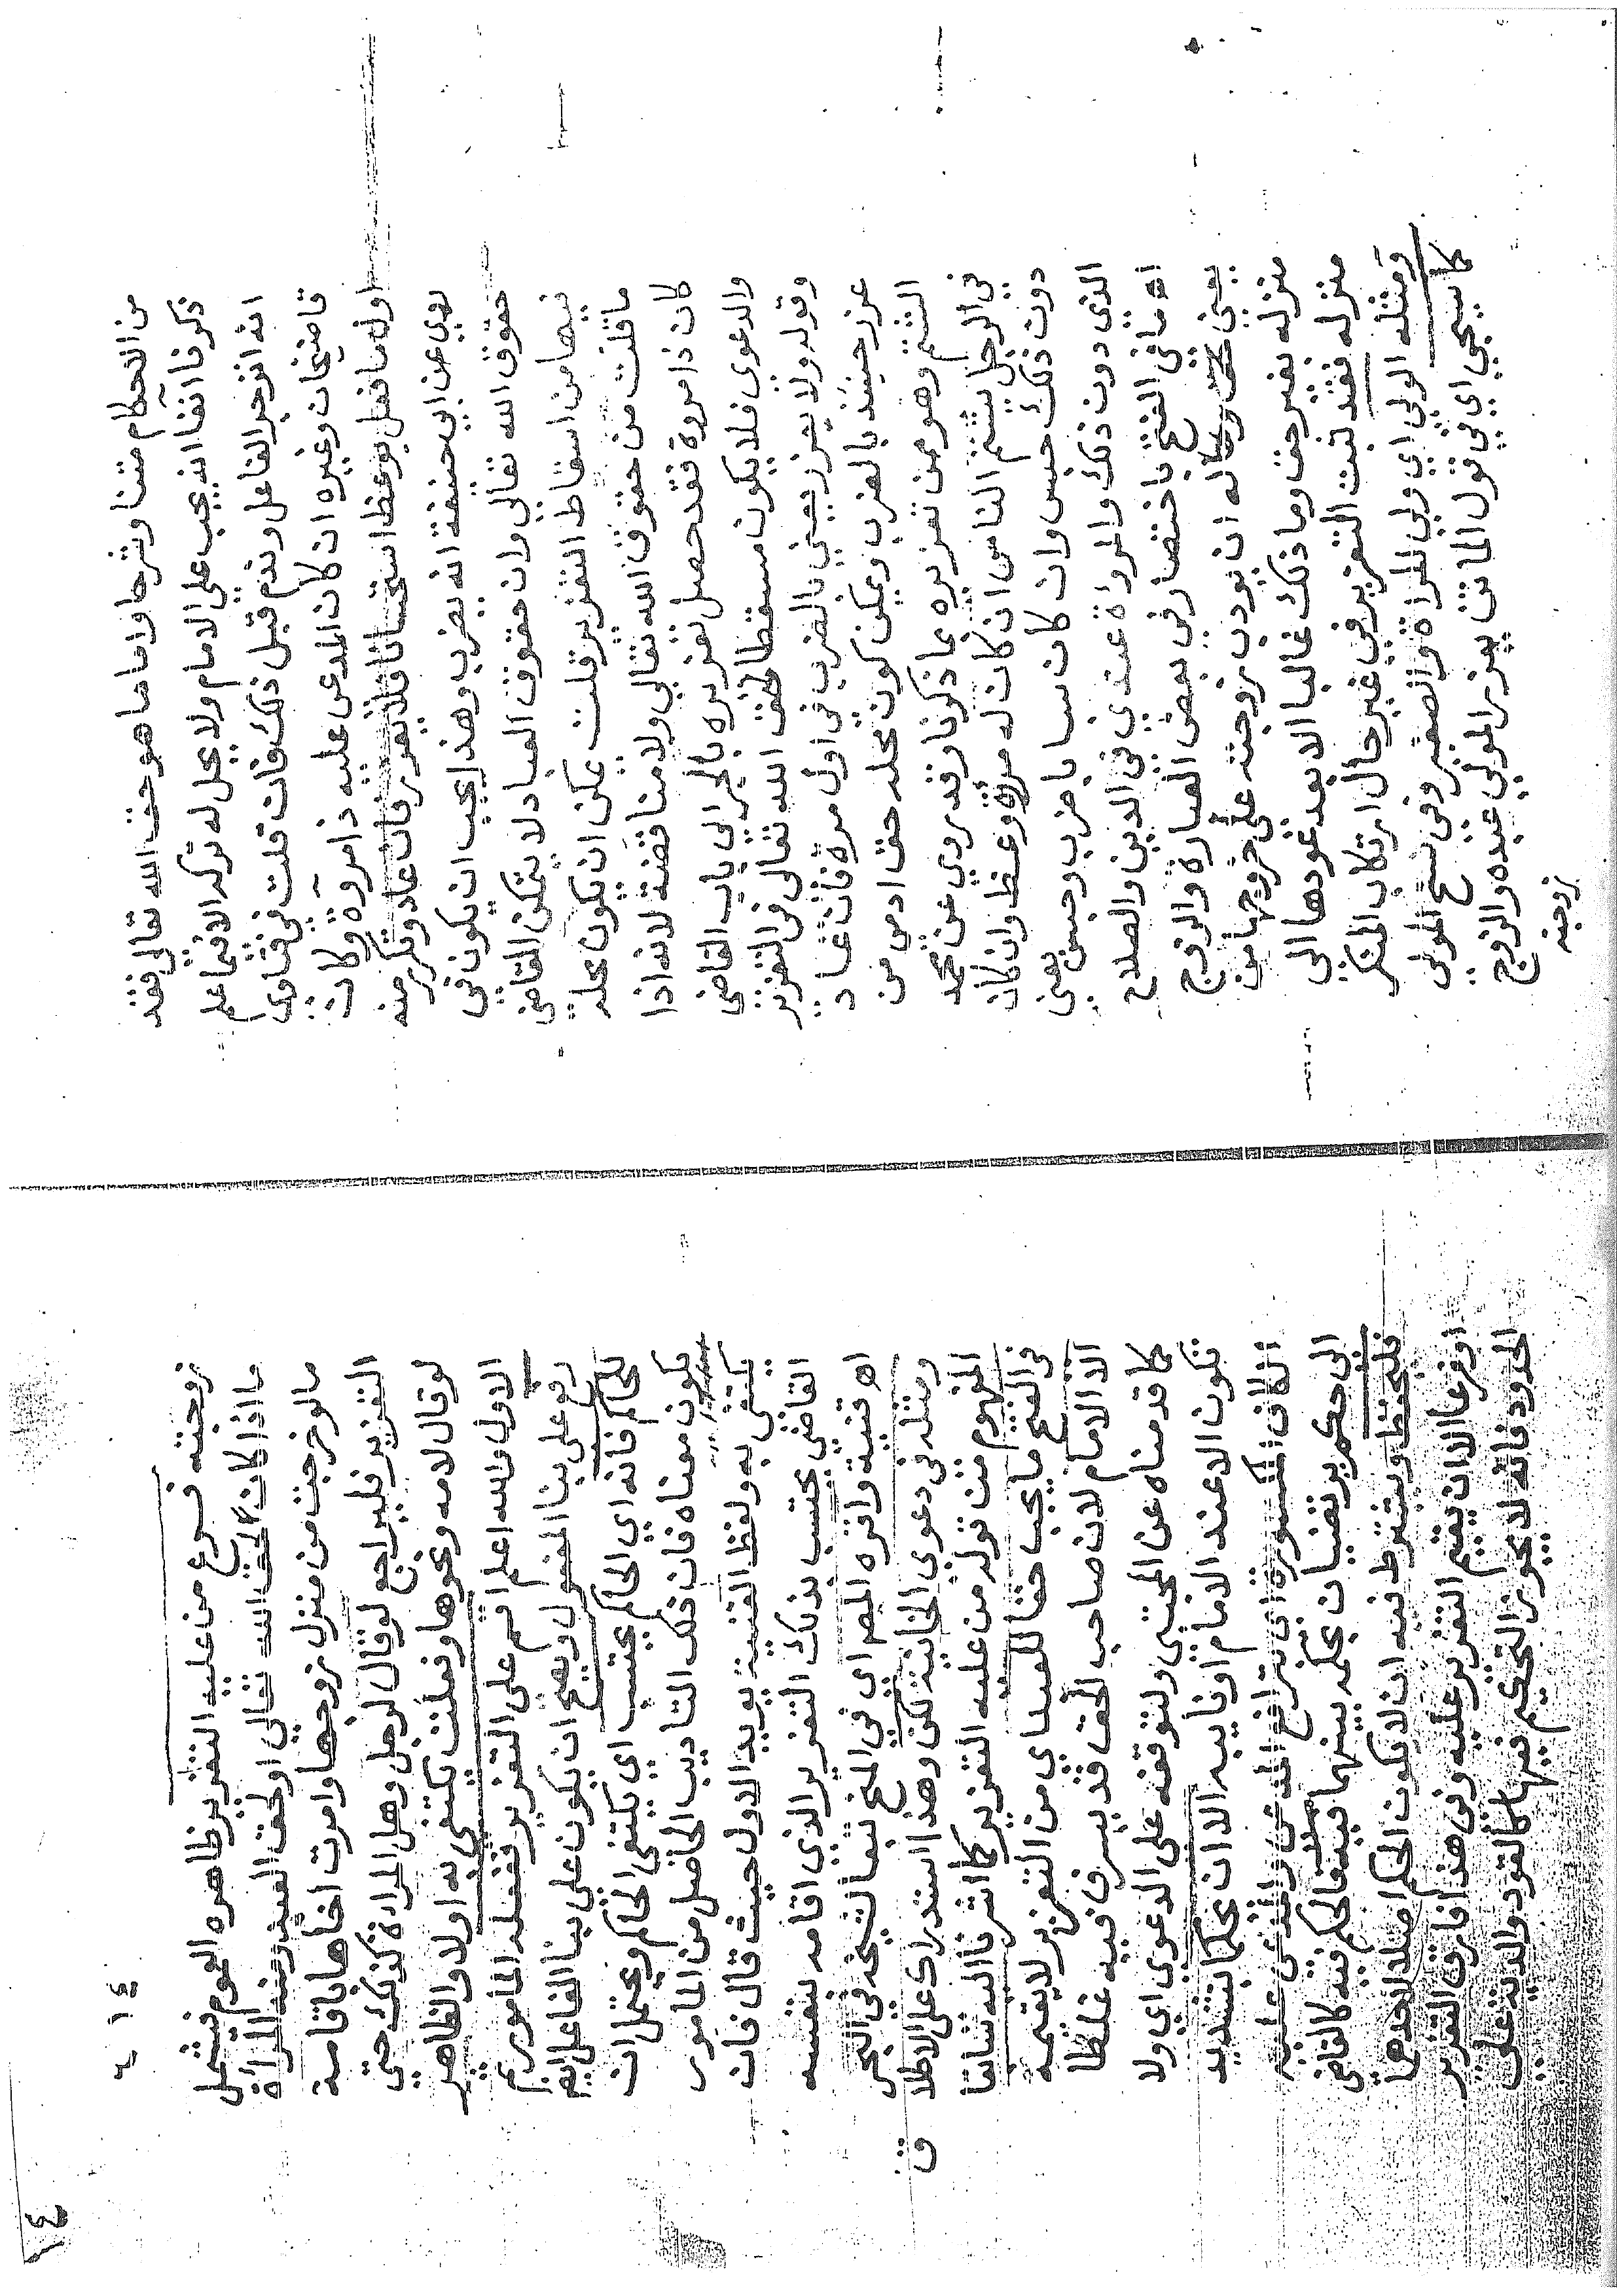 من الاحكام متنا وشرحا واما ما هو حق الله تعالى فقد
ذكرنا آنفا انه يجب على الامام ولا يحل له تركه الا فيما علم
انه انزجر الفاعل وندم قبل ذلك فان قلت في فتاوى
قاضيخان وغيره ان كان المدعى عليه ذا مروة وكان
اول ما فعل يوعظ استحسانا فلا يعزر فان عاد وتكرر منه
روي عن ابي حنيفة انه يضرب وهذا يجب ان يكون في
حقوق الله تعالى وان حقوق العباد لا يتمكن القاضي
فيها من اسقاط التعزير قلت يمكن ان يكون محله
ما قلت من حقوق الله تعالى ولا مناقضة لانه اذا
كان ذا مروة فقد حصل تعزيره بالجر الى باب القاضي
والدعوى فلا يكون مسقطا لحق الله تعالى في التعزير
وقوله ولا يعزر يعني بالضرب في اول مرة فان عاد
عزر حينئذ بالضرب ويمكن كون محله حق ادمي من
الشتم وهو من تعزيره بما ذكرنا وقد روي عن محمد
في الرجل يشتم الناس ان كان له مروة وعظ وان كان
دون ذلك حبس وان كان سبابا ضرب وحبس يعني
الذي دون ذلك والمروة عندي في الدين والصلاح
اه ما في الفتح باختصار في بعض العبارة والزوج
يعني له ان يودب زوجته على خروجها من
منزله بغير حق وما ذلك غالبا الا بعد عودها الى
منزله فقد ثبت التعزير في غير حال ارتكاب المنكر
ومثله الولي اي ولي المراة والصغير وفي نسخ المولى
كما سيجي اي في قول الماتن يعزر المولى عبده والزوج
زوجته
٢١٤
١٤
زوجته فرع من عليه التعزير ظاهره العموم فيشمل
ما اذا كان لحق الله تعالى او لحق العبد ومنه المراة
ما لو خرجت من منزل زوجها وامرت اخاها باقامة
التعزير فليراجع لو قال لرجل وهل المراة كذلك حتى
لو قال لامه ونحوها وفعلت يكتفي به اولا والظاهر
الاول والله اعلم اقم علي التعزير ففعله المامور ثم
رفع على بنا المفعول ويصح ان يكون على بنا الفاعل ايضا
للحاكم فانه اي الحاكم يحتسب اي يكتفي الحاكم ويحتمل ان
يكون معناه فان ذلك التاديب الحاصل من المامور
يكتفى به ولفظ القنية يويد الاول حيث قال فان
القاضي يحتسب بذلك التعزير الذي اقامه بنفسه
اه قنية واقره المص اي في المنح تبعا لشيخه في البحر
ومثله في دعوى الخانية لكن وهذا استدراك على الاطلاق
المفهوم من قوله من عليه التعزير كما اشرنا اليه سابقا
في الفتح ما يجب حقا للعبد اي من التعزير لا يقيمه
الا الامام لان صاحب الحق قد يسرف فيه غلظا
كما قدمناه عن المجتبى ولتوقفه على الدعوى اي ولا
تكون الا عند الامام او نايبه الا ان يحكما بتشديد
الكاف المكسورة اي يترافع المدعي والمدعى عليه
الى حكم يرتضيان بحكمه بينهما فيه فالحكم فيه كالقاضي
فليحفظ ويشترط فيه ان لا يكون الحكم اصلا لاحدهما
او فرعا الا ان يقيم التعزير عليه وفي هذا فارق التعزير
الحدود فانه لا يجوز التحكيم فيها كالقود والدية على